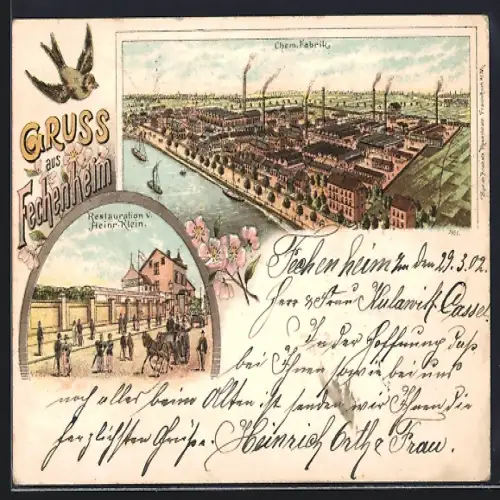 Chem. Fabrik
GRUSS
aus
Fechenheim
Restauration v.
Heinr. Klein.
Fechenheim den 29.3.02.
Herr & Frau Kulawik Cassel
In der Hoffnung daß
bei Ihnen sowie bei uns
noch alles beim Alten ist senden wir Ihnen die
herzlichsten Grüße. Heinrich Orth & Frau.